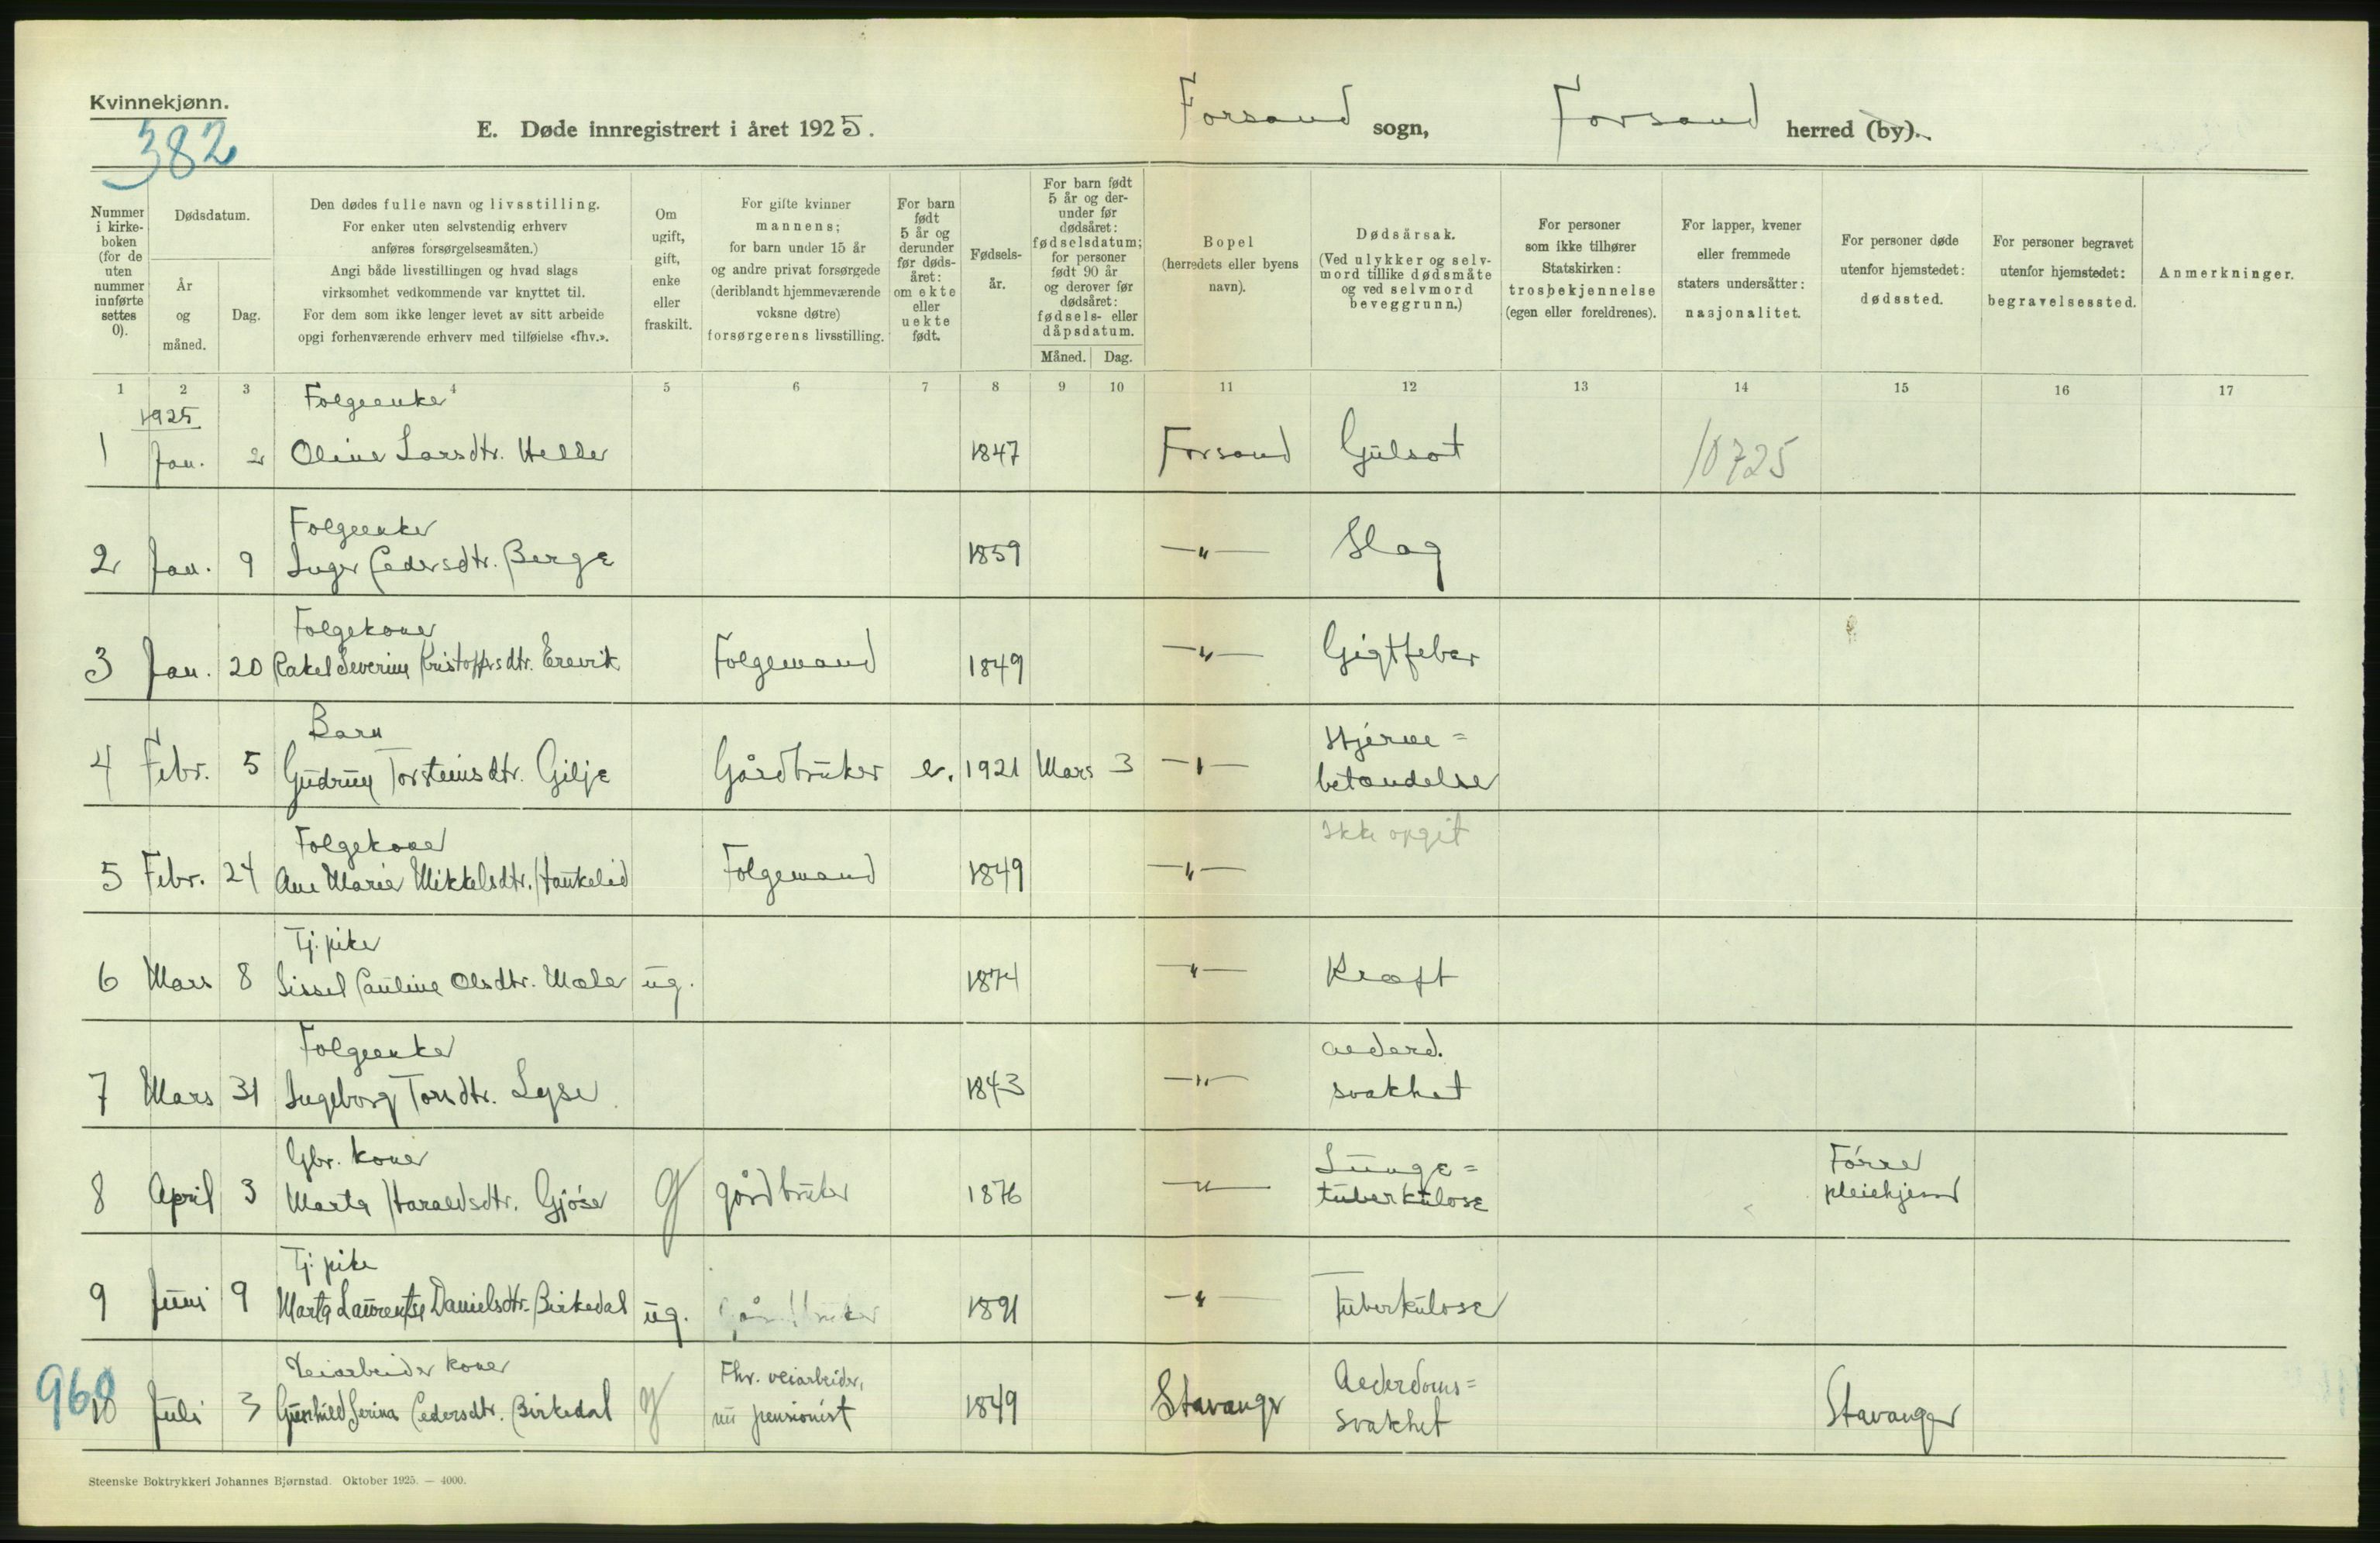 Kvinnekjønn.
382
E. Døde innregistrert i året 1925.
Forsand sogn, Forsand herred (by).
Nummer i kirkeboken (for de uten nummer innførte settes 0).
Dødsdatum.
År og måned.
Dag.
Den dødes fulle navn og livsstilling.
For enker uten selvstendig erhverv
anføres forsørgelsesmåten.)
Angi både livsstillingen og hvad slags
virksomhet vedkommende var knyttet til.
For dem som ikke lenger levet av sitt arbeide
opgi forhenværende erhverv med tilføielse «fhv.».
Om ugift, gift, enke eller fraskilt.
For gifte kvinner
mannens;
for barn under 15 år
og andre privat forsørgede
(deriblandt hjemmeværende
voksne døtre)
forsørgerens livsstilling.
For barn født 5 år og derunder før dødsåret: om ekte eller uekte født.
Fødselsår.
For barn født 5 år og derunder før dødsåret: fødselsdatum; for personer født 90 år og derover før dødsåret: fødsels- eller dåpsdatum.
Måned. Dag.
Bopel
(herredets eller byens
navn).
Dødsårsak.
(Ved ulykker og selvmord tillike dødsmåte
og ved selvmord
beveggrunn.)
For personer
som ikke tilhører
Statskirken:
trosbekjennelse
(egen eller foreldrenes).
For lapper, kvener
eller fremmede
staters undersåtter:
nasjonalitet.
For personer døde
utenfor hjemstedet:
dødssted.
For personer begravet
utenfor hjemstedet:
begravelsessted.
Anmerkninger.
1 2 3 4 5 6 7 8 9 10 11 12 13 14 15 16 17
1925
Folgeenke
1 Jan. 2 Oline Larsdtr. Helle 1847 Forsand Gulsot 10725
Folgeenke
2 Jan. 9 Inger Pedersdtr. Berge 1859 —"— Slag
Folgekone
3 Jan. 20 Rakel Severine Kristoffersdtr. Erevik Folgemand 1849 —"— Gigtfeber
Barn
4 Febr. 5 Gudrun Torsteinsdtr. Gilje Gårdbruker e. 1921 Mars 3 —"— Hjerne=
betændelse
Folgekone
5 Febr. 24 Ane Marie Mikkelsdtr. Haukelid Folgemand 1849 —"— Ikke opgit
Tj. pike
6 Mars 8 Sissel Pauline Olsdtr. Mæle ug. 1874 —"— Kræft
Folgeenke
7 Mars 31 Ingeborg Torsdtr. Lyse 1843 —"— Alderd.
svakhet
Gbr. kone
8 April 3 Marta Haraldsdtr. Gjøse g gårdbruker 1876 —"— Lunge=
tuberkulose Førre
pleiehjem
Tj. pike
9 Juni 9 Marta Laurentse Danielsdtr. Birkedal ug. Gårdbruker 1891 —"— Tuberkulose
Veiarbeider kone
968
10 Juli 3 Gunhild Serina Pedersdtr. Birkedal g Fhv. veiarbeider,
nu pensionist 1849 Stavanger Alderdoms=
svakhet Stavanger
Steenske Boktrykkeri Johannes Bjørnstad. Oktober 1925. — 4000.